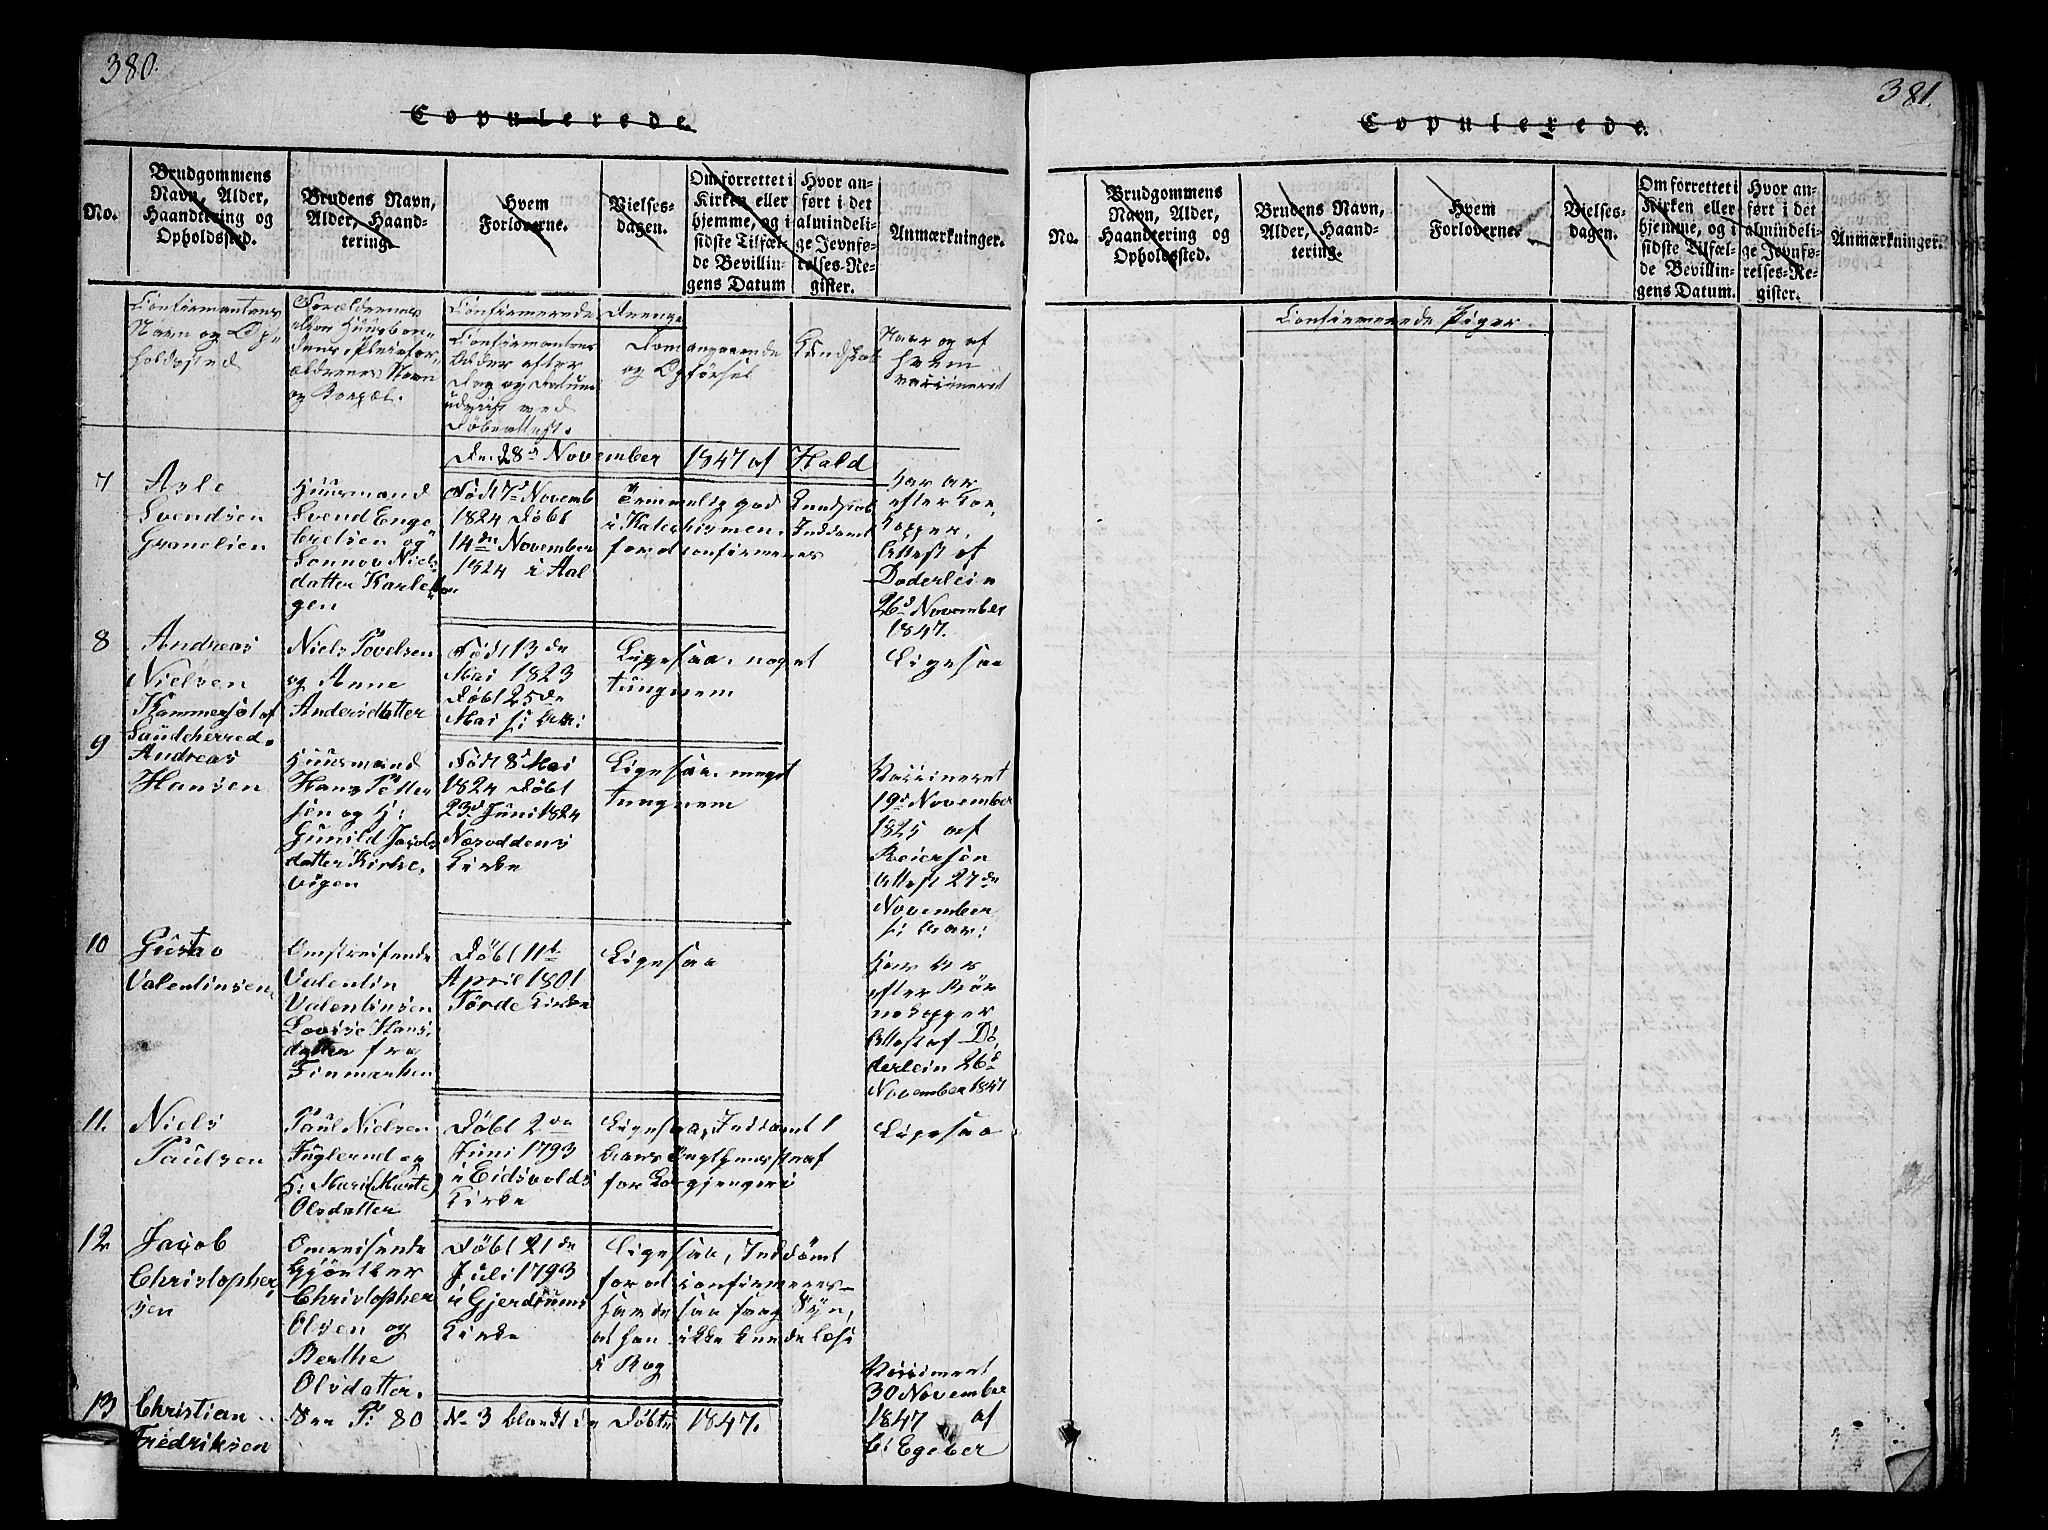 380.
Copulerede.
No.
Brudgommens
Navn, Alder,
Haandtering og
Opholdssted.
Brudens Navn,
Alder, Haand-
tering.
Hvem
Forloverne.
Vielses-
dagen.
Om forrettet i
Kirken eller
hjemme, og i
sidste Tilfæl-
de Bevillin-
gens Datum
Hvor an-
ført i det
almindeli-
ge Jevnfø-
relses-Re-
gister.
Anmærkninger.
Confirmantens
Navn og Op-
holdssted
Forældrenes
eller Huusbon-
dens, Pleiefor-
ældrenes Navn
og
Confirmerede Drenge
Confirmantens
Alder efter
Dag og Datum
udviist ved
Døbeattest.
Dom angaaende Kundskab
og Opførsel
Naar og af
hvem
vaccineret
Den 28d November 1847 af Hald
7
Asle
Svendsen
Granelien
Huusmand
Svend Enge
bretsen og
Sonnov Niels
datter Karle
gen
Født 7d Novemb
1824 Døbt
14de November
1824 i Aal
Temmelig god Kundskab
i Katechismen. Inddømt
for at confirmeres
Har Ar
efter Ko-
kopper.
Attest af
Døderlein
26d November
1847.
8
Andreas
Nielsen
Kammersøl af
Saudeherred.
Niels Povelsen
og Anne
Andersdatter
Født 13de
Mai 1823
Døbt 25de
Mai s: Aar:
Ligesaa, noget
tungnem
Ligesaa
9
Andreas
Hansen
Huusmand
Hans Petter
sen og H:
Gunild Jacobs
datter Kirke-
vigen
Født 8d Mai
1824 Døbt
23d Juni 1824
Næsoddens
Kirke
Ligesaa, meget
tungnem
Vaccineret
19d November
1825 af
Reiersen
Attest 27de
November
s: Aar:
10
Gustav
Valentinsen.
Omstreifende
Valentin
Valentinsen
Lovise Hans-
datter fra
Finmarken
Døbt 11te
April 1801
Førde Kirke
Ligesaa
Har Ar
efter Bør
nekopper
Attest af Dø
derlein 26d
November 1847
11.
Niels
Paulsen
Paul Nielsen
Fuglerud og
H: Mari (Marte)
Olsdatter
Døbt 2den
Juni 1793
i Eidsvolds
Kirke
Ligesaa, Inddømt
for Løsgjengeri
Ligesaa
12
Jacob
Christopher-
sen
Omreisende
Gjørtler
Christopher
Olsen og
Berthe
Olsdatter.
Døbt 21de
Juli 1793
i Gjerdrums
Kirke
Ligesaa, Inddømt
for at confirmeres
Havde saa svag Syn,
at han ikke kunde læse
i Bog
13
Christian
Fredriksen
See P: 80
No 3 blandt de Døbte 1847.
Vaccineret
30 November
1847 af
C: Egeber
381.
Copulerede.
No.
Brudgommens
Navn, Alder,
Haandtering og
Opholdssted.
Brudens Navn,
Alder, Haand-
tering.
Hvem
Forloverne.
Vielses-
dagen.
Om forrettet i
Kirken eller
hjemme, og i
sidste Tilfæl-
de Bevillin-
gens Datum.
Hvor an-
ført i det
almindeli-
ge Jevnfø-
relses-Re-
gister.
Anmærkninger.
Confirmerede Piger.